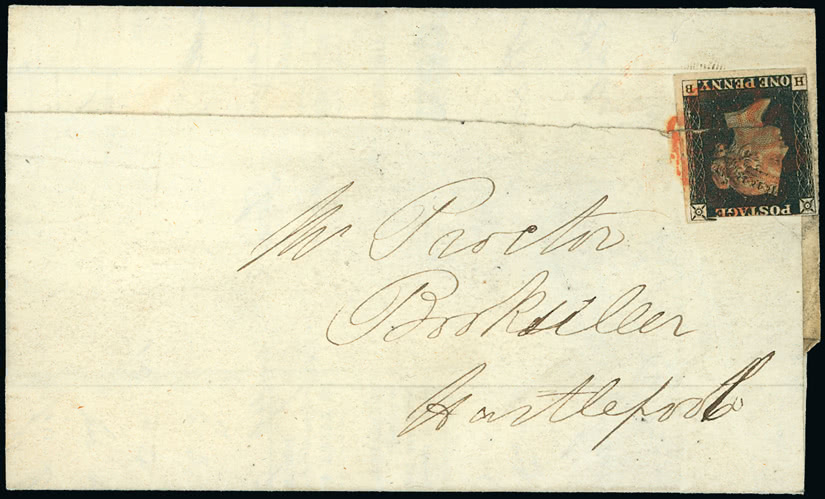 POSTAGE
H ONE PENNY B
Mr Proctor
Bookseller
Hartlepool